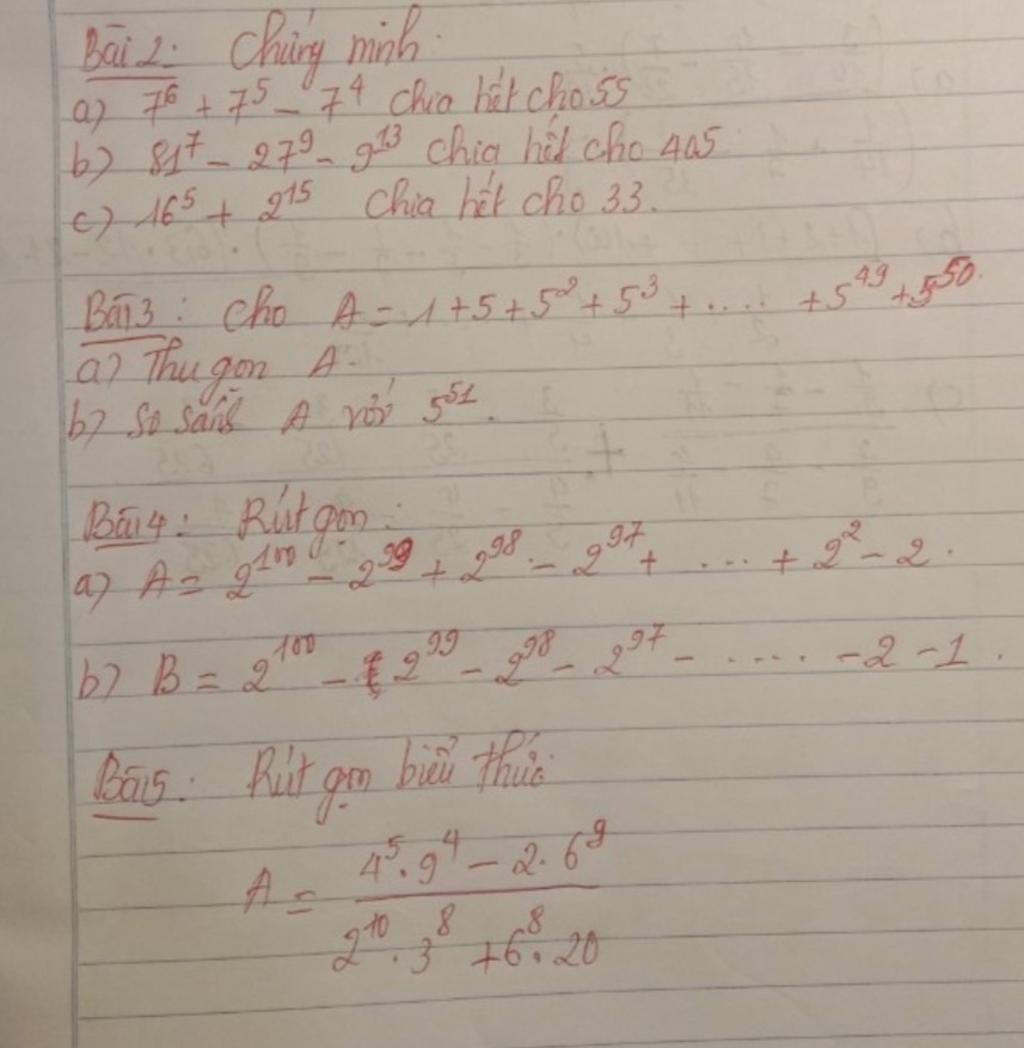 Bài 2: Chứng minh:
a) 7⁶ + 7⁵ - 7⁴ chia hết cho 55
b) 81⁷ - 27⁹ - 9¹³ chia hết cho 405
c) 16⁵ + 2¹⁵ chia hết cho 33.
Bài 3: Cho A = 1 + 5 + 5² + 5³ + ..... + 5⁴⁹ + 5⁵⁰.
a) Thu gọn A.
b) So sánh A với 5⁵¹.
Bài 4: Rút gọn:
a) A = 2¹⁰⁰ - 2⁹⁹ + 2⁹⁸ - 2⁹⁷ + ... + 2² - 2.
b) B = 2¹⁰⁰ - 2⁹⁹ - 2⁹⁸ - 2⁹⁷ - ..... - 2 - 1.
Bài 5: Rút gọn biểu thức:
A = (4⁵.9⁴ - 2.6⁹) / (2¹⁰.3⁸ + 6⁸.20)